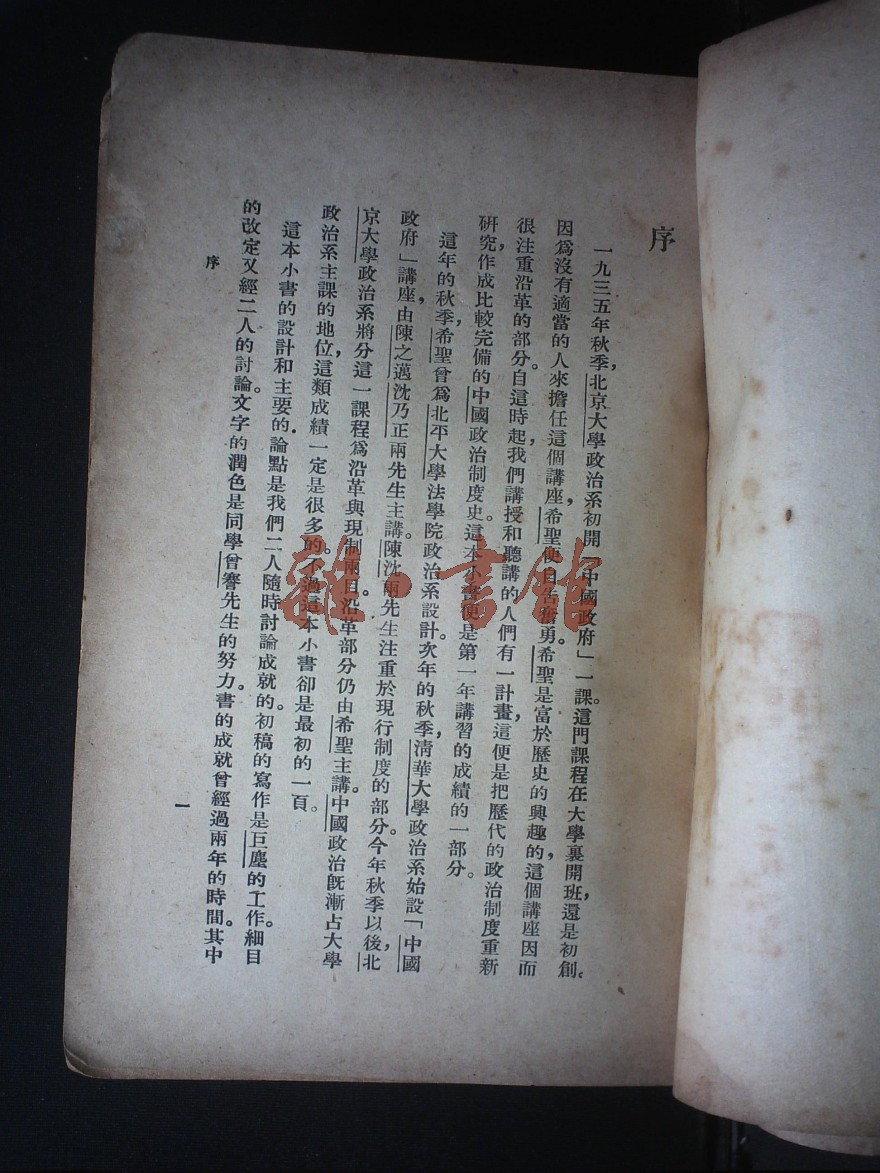 序
一九三五年秋季，北京大學政治系初開「中國政府」一課。這門課程在大學裏開班，還是初創。
因爲沒有適當的人來擔任這個講座，希聖便自告奮勇。希聖是富於歷史的興趣的，這個講座因而
很注重沿革的部分。自這時起，我們講授和聽講的人們有一計畫，這便是把歷代的政治制度重新
研究，作成比較完備的中國政治制度史。這本小書便是第一年講習的成績的一部分。
這年的秋季，希聖曾爲北平大學法學院政治系設計。次年的秋季，清華大學政治系始設「中國
政府」講座，由陳之邁沈乃正兩先生主講。陳沈兩先生注重於現行制度的部分。今年秋季以後，北
京大學政治系將分這一課程爲沿革與現制兩目，沿革部分仍由希聖主講。中國政治旣漸占大學
政治系主課的地位，這類成績一定是很多的。不過這本小書卻是最初的一頁。
這本小書的設計和主要的論點是我們二人隨時討論成就的。初稿的寫作是巨塵的工作。細目
的改定又經二人的討論。文字的潤色是同學曾謇先生的努力。書的成就曾經過兩年的時間。其中
序
一
雜·書館